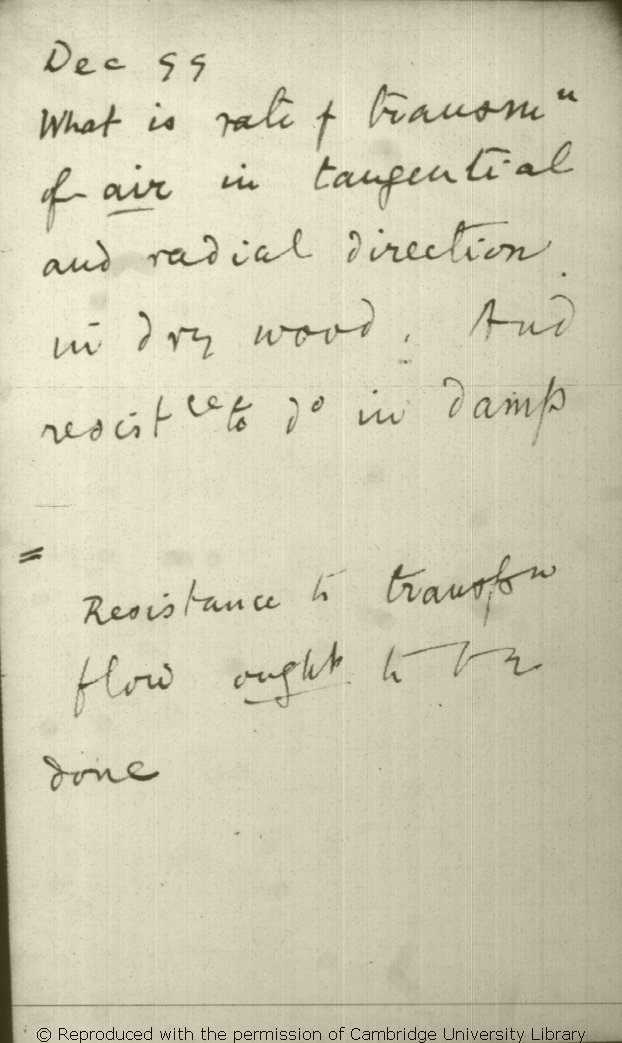 Dec 99
What is rate of transmn
of air in tangential
and radial direction
in dry wood. And
resistce to do in damp
=
Resistance to transpn
flow ought to be
done
© Reproduced with the permission of Cambridge University Library